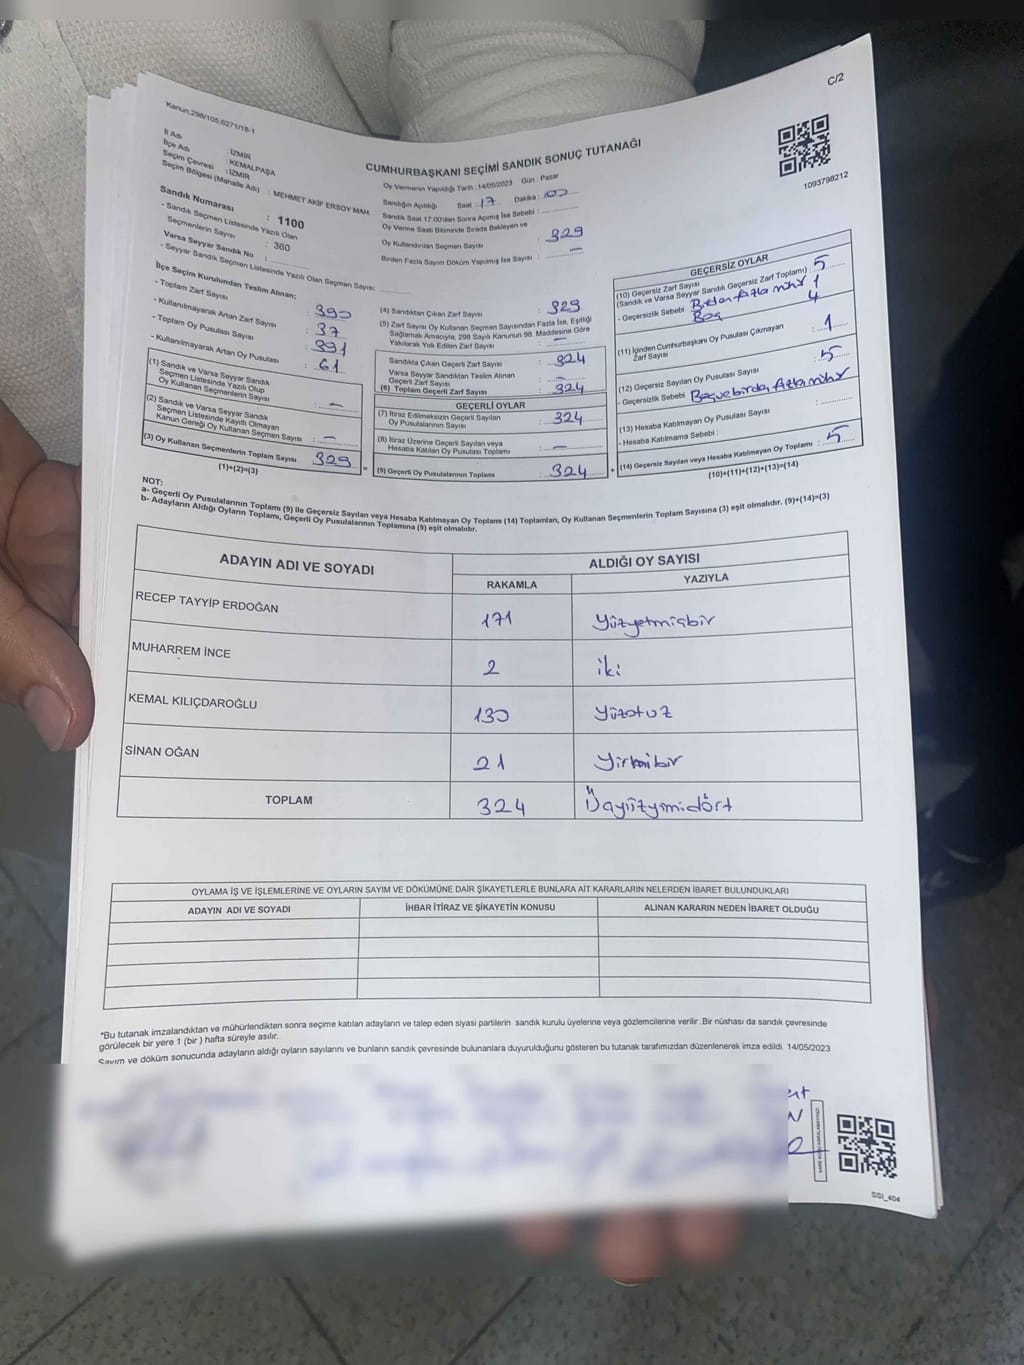 C/2
Kanun,298/105,6271/18-1
CUMHURBAŞKANI SEÇİMİ SANDIK SONUÇ TUTANAĞI
1093798212
İl Adı : İZMİR
İlçe Adı : KEMALPAŞA
Seçim Çevresi : İZMİR
Seçim Bölgesi (Mahalle Adı) : MEHMET AKİF ERSOY MAH.
Sandık Numarası : 1100
- Sandık Seçmen Listesinde Yazılı Olan
Seçmenlerin Sayısı : 360
Varsa Seyyar Sandık No :
- Seyyar Sandık Seçmen Listesinde Yazılı Olan Seçmen Sayısı:
Oy Vermenin Yapıldığı Tarih : 14/05/2023 Gün : Pazar
Sandığın Açıldığı Saat : 17 Dakika : 00
Sandık Saat 17:00'den Sonra Açılmış İse Sebebi :
Oy Verme Saati Bitiminde Sırada Bekleyen ve
Oy Kullandırılan Seçmen Sayısı : 329
Birden Fazla Sayım Döküm Yapılmış İse Sayısı : —
İlçe Seçim Kurulundan Teslim Alınan;
- Toplam Zarf Sayısı : 390
- Kullanılmayarak Artan Zarf Sayısı : 37
- Toplam Oy Pusulası Sayısı : 391
- Kullanılmayarak Artan Oy Pusulası : 61
(1) Sandık ve Varsa Seyyar Sandık
Seçmen Listesinde Yazılı Olup
Oy Kullanan Seçmenlerin Sayısı : —
(2) Sandık ve Varsa Seyyar Sandık
Seçmen Listesinde Kayıtlı Olmayan
Kanun Gereği Oy Kullanan Seçmen Sayısı : —
(3) Oy Kullanan Seçmenlerin Toplam Sayısı 329
(1)+(2)=(3)
(4) Sandıktan Çıkan Zarf Sayısı : 329
(5) Zarf Sayısı Oy Kullanan Seçmen Sayısından Fazla İse, Eşitliği
Sağlamak Amacıyla; 298 Sayılı Kanunun 98. Maddesine Göre
Yakılarak Yok Edilen Zarf Sayısı : —
Sandıkta Çıkan Geçerli Zarf Sayısı : 324
Varsa Seyyar Sandıktan Teslim Alınan
Geçerli Zarf Sayısı : —
(6) Toplam Geçerli Zarf Sayısı : 324
GEÇERLİ OYLAR
(7) İtiraz Edilmeksizin Geçerli Sayılan
Oy Pusulasının Sayısı : 324
(8) İtiraz Üzerine Geçerli Sayılan veya
Hesaba Katılan Oy Pusulası Toplamı : —
(9) Geçerli Oy Pusulalarının Toplamı : 324
GEÇERSİZ OYLAR
(10) Geçersiz Zarf Sayısı
(Sandık ve Varsa Seyyar Sandık Geçersiz Zarf Toplamı) : 5
- Geçersizlik Sebebi Birden fazla mühür 1
Boş 4
(11) İçinden Cumhurbaşkanı Oy Pusulası Çıkmayan
Zarf Sayısı : 1
(12) Geçersiz Sayılan Oy Pusulası Sayısı : 5
- Geçersizlik Sebebi Boş ve birden fazla mühür
(13) Hesaba Katılmayan Oy Pusulası Sayısı :
- Hesaba Katılmama Sebebi :
(14) Geçersiz Sayılan veya Hesaba Katılmayan Oy Toplamı : 5
(10)+(11)+(12)+(13)=(14)
NOT:
a- Geçerli Oy Pusulalarının Toplamı (9) ile Geçersiz Sayılan veya Hesaba Katılmayan Oy Toplamı (14) Toplamları, Oy Kullanan Seçmenlerin Toplam Sayısına (3) eşit olmalıdır. (9)+(14)=(3)
b- Adayların Aldığı Oyların Toplamı, Geçerli Oy Pusulalarının Toplamına (9) eşit olmalıdır.
ADAYIN ADI VE SOYADI ALDIĞI OY SAYISI
RAKAMLA YAZIYLA
RECEP TAYYİP ERDOĞAN 171 Yüzyetmişbir
MUHARREM İNCE 2 iki
KEMAL KILIÇDAROĞLU 130 Yüzotuz
SİNAN OĞAN 21 Yirmibir
TOPLAM 324
OYLAMA İŞ VE İŞLEMLERİNE VE OYLARIN SAYIM VE DÖKÜMÜNE DAİR ŞİKAYETLERLE BUNLARA AİT KARARLARIN NELERDEN İBARET BULUNDUKLARI
ADAYIN ADI VE SOYADI İHBAR İTİRAZ VE ŞİKAYETİN KONUSU ALINAN KARARIN NEDEN İBARET OLDUĞU
*Bu tutanak imzalandıktan ve mühürlendikten sonra seçime katılan adayların ve talep eden siyasi partilerin sandık kurulu üyelerine veya gözlemcilerine verilir .Bir nüshası da sandık çevresinde
görülecek bir yere 1 (bir ) hafta süreyle asılır.
Sayım ve döküm sonucunda adayların aldığı oyların sayılarını ve bunların sandık çevresinde bulunanlara duyurulduğunu gösteren bu tutanak tarafımızdan düzenlenerek imza edildi 14/05/2023
SSI_404